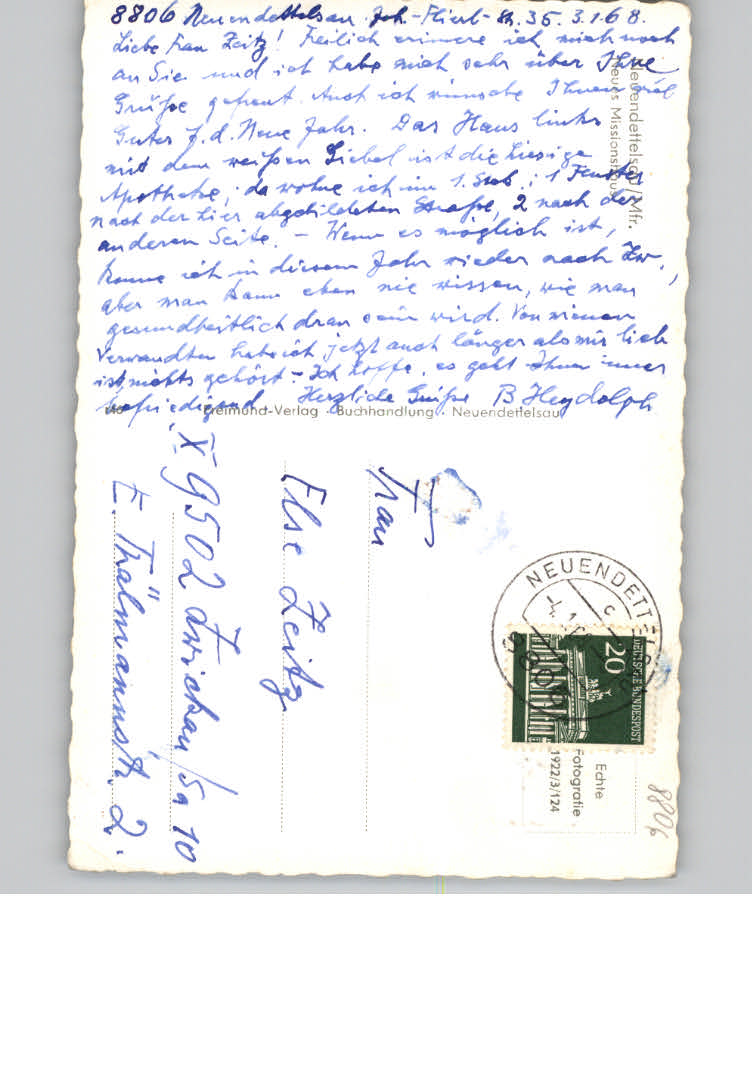 8806 Neuendettelsau. Joh.-Flierl-Str. 35. 3.1.68.
Liebe Frau Zeitz! Freilich erinnere ich mich noch
an Sie und ich habe mich sehr über Ihre
Grüße gefreut. Auch ich wünsche Ihnen viel
Gutes f. d. Neue Jahr. Das Haus links
mit dem weißen Giebel ist die hiesige
Apotheke, da wohne ich im 1. Stock; 1 Fenster
nach der hier abgebildeten Straße, 2 nach der
anderen Seite. – Wenn es möglich ist,
komme ich in diesem Jahr wieder nach Zw.,
aber man kann eben nie wissen, wie man
gesundheitlich dran sein wird. Von meinen
Verwandten habe ich jetzt auch länger als mir lieb
ist, nichts gehört. – Ich hoffe, es geht Ihnen immer
befriedigend. Herzliche Grüße B Heydolph
Neuendettelsau/Mfr.
Neues Missionshaus
Freimund-Verlag · Buchhandlung · Neuendettelsau
Frau
Else Zeitz
X 9502 Zwickau/Sa 10
E. Thälmannstr. 2.
NEUENDETTELSAU
8806
DEUTSCHE BUNDESPOST
20
Echte
Fotografie
1922/3/124
8806